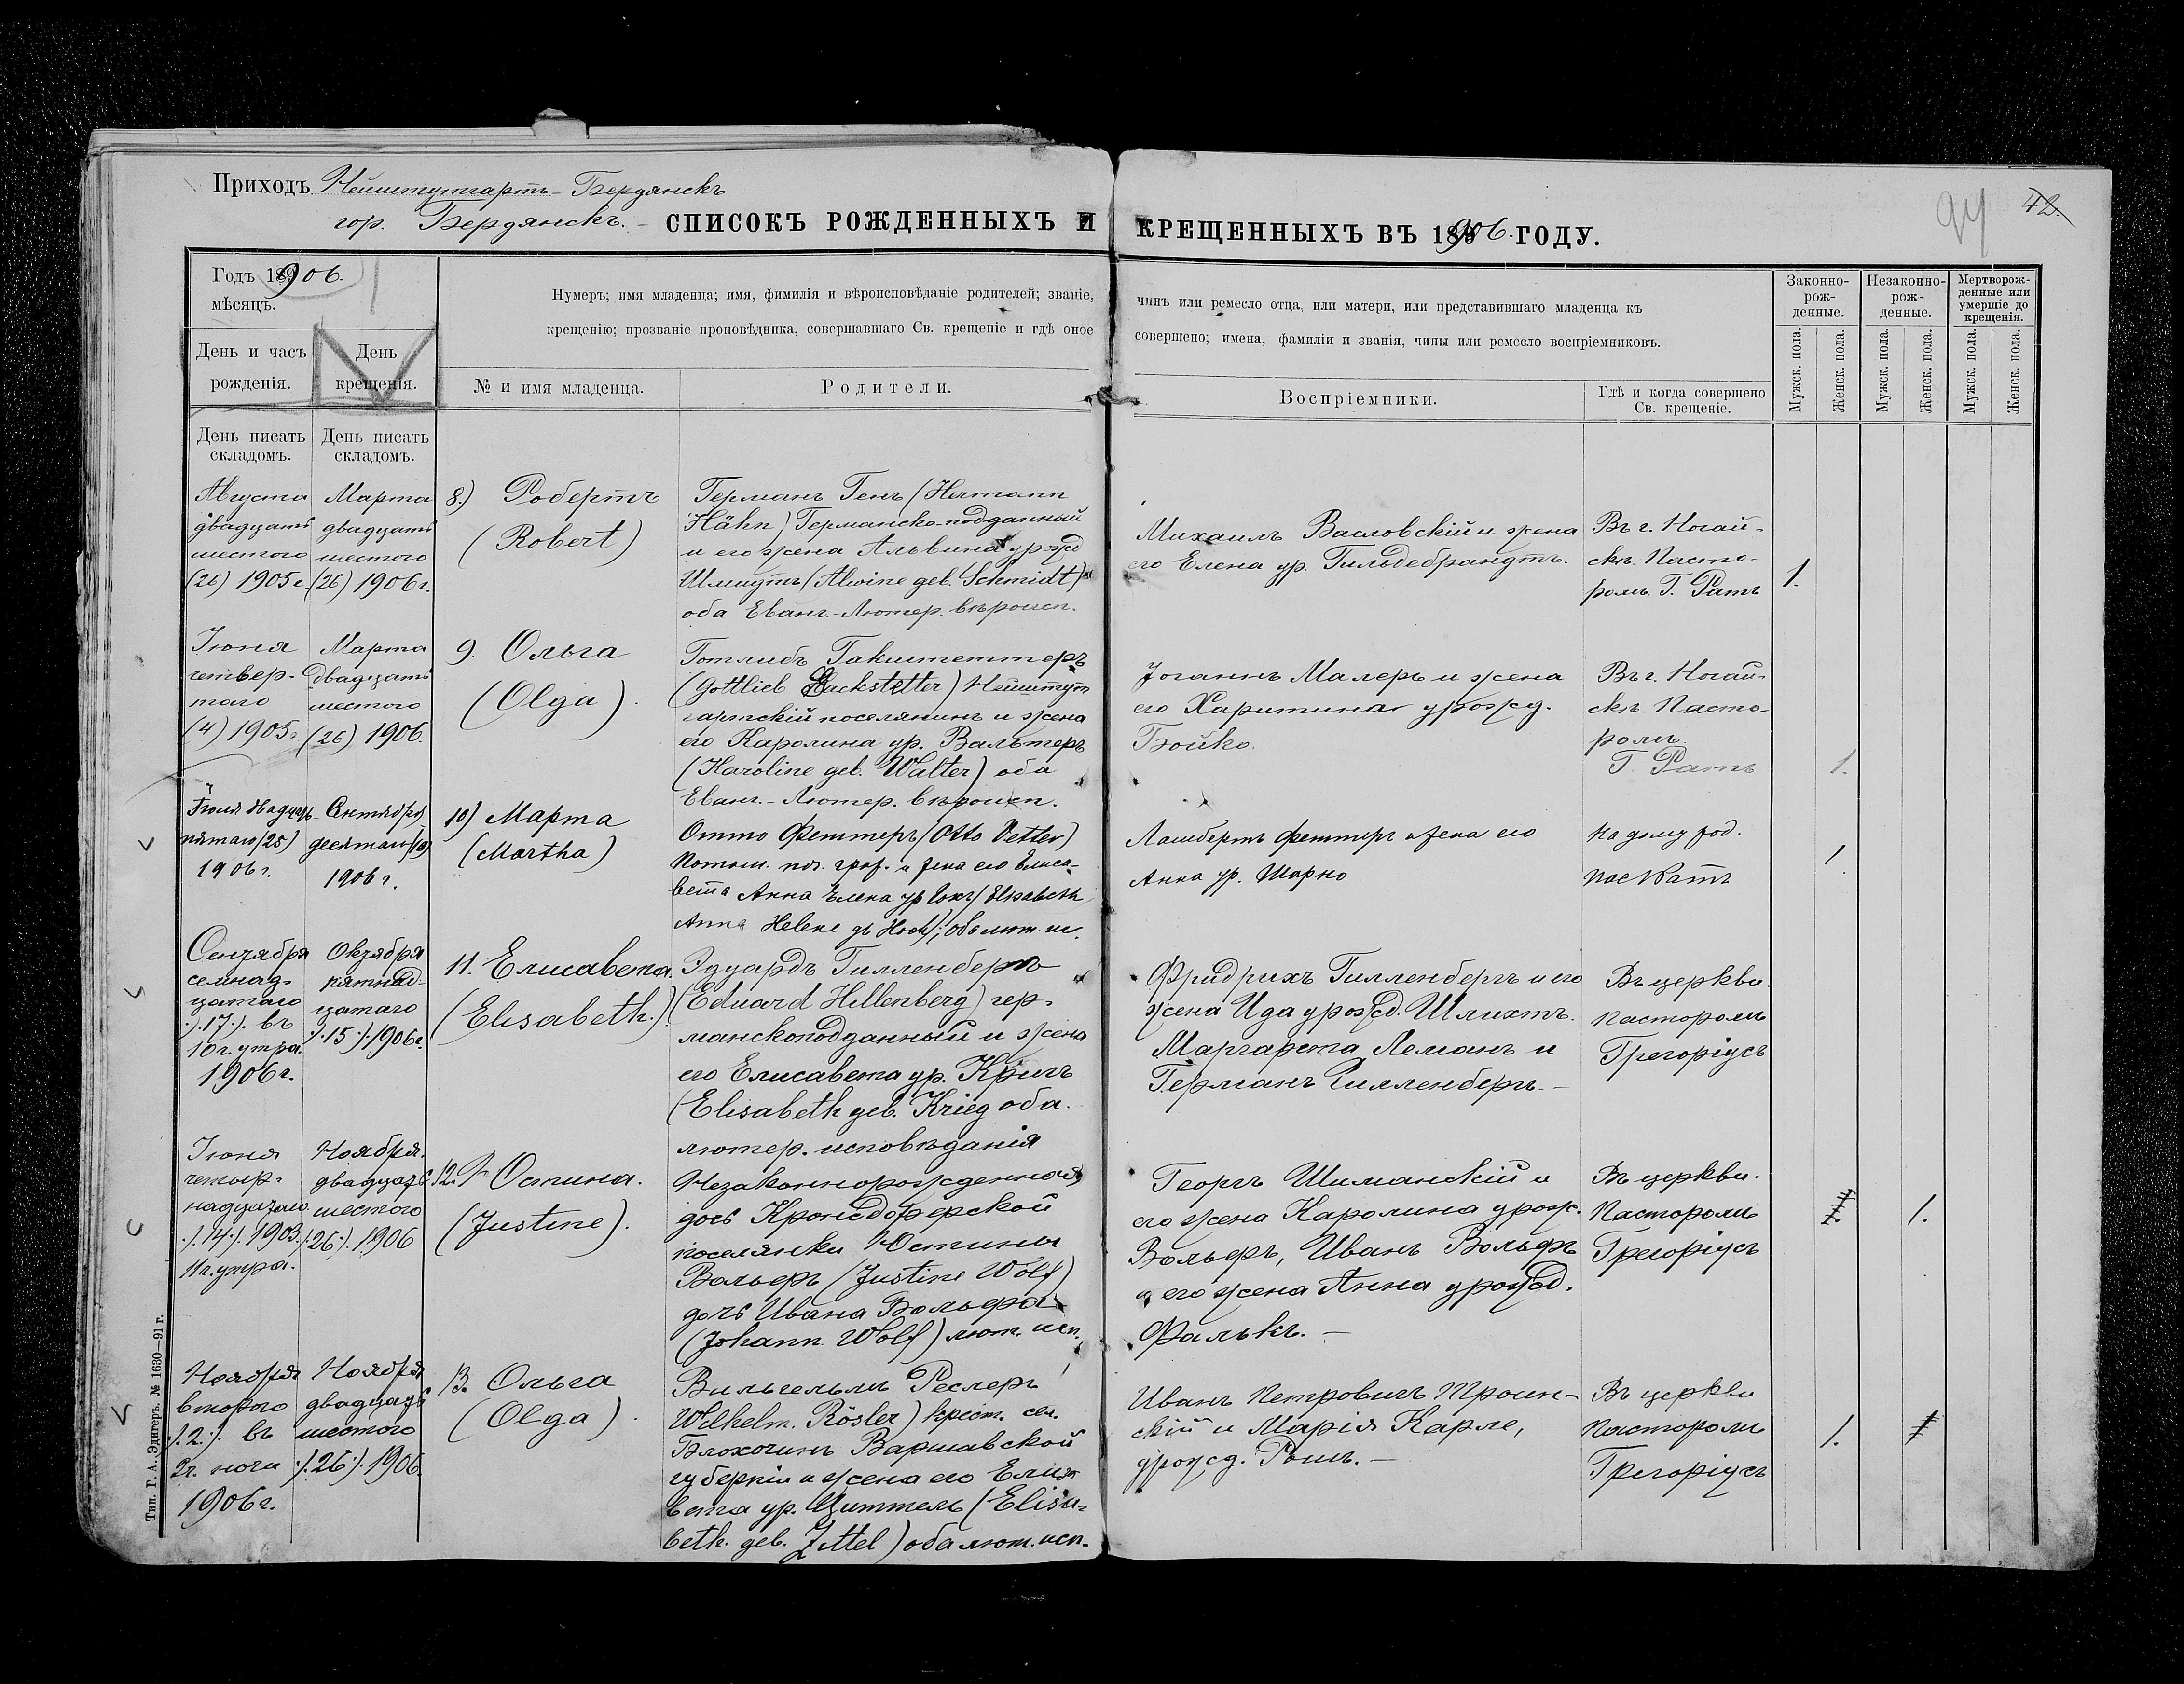 Приходъ Нейштутгартъ-Бердянскъ
гор. Бердянскъ. – СПИСОКЪ РОЖДЕННЫХЪ И КРЕЩЕННЫХЪ ВЪ 1906 ГОДУ.
94 42.
Годъ 1906.
мѣсяцъ.
День и часъ
рожденія.
День
крещенія.
Нумеръ; имя младенца; имя, фимилія и вѣроисповѣданіе родителей; званіе, чинъ или ремесло отца, или матери, или представившаго младенца къ
крещенію; прозваніе проповѣдника, совершавшаго Св. крещеніе и гдѣ оное совершено; имена, фамиліи и званія, чины или ремесло воспріемниковъ.
№ и имя младенца.
Родители.
Воспріемники.
Гдѣ и когда совершено
Св. крещеніе.
Законно-
рож-
денные.
Незаконно-
рож-
денные.
Мертворож-
денные или
умершіе до
крещенія.
Мужск. пола.
Женск. пола.
Мужск. пола.
Женск. пола.
Мужск. пола.
Женск. пола.
День писать
складомъ.
День писать
складомъ.
Августа
двадцать
шестого
(26) 1905 г.
Марта
двадцать
шестого
(26) 1906 г.
8.) Робертъ
(Robert)
Германъ Генъ (Hermann
Hähn) Германско-подданный
и его жена Альвина урожд
Шмидтъ (Alwine geb. Schmidt)
оба Еванг.-Лютер. вѣроисп.
Михаилъ Васловскій и жена
его Елена ур. Гильдебрандтъ.
Въ г. Ногай-
скѣ. Пасто-
ромъ Г. Ратъ
1.
Іюня
четвер-
таго
(4) 1905 г.
Марта
двадцать
шестого
(26) 1906.
9. Ольга
(Olga).
Готлибъ Гакштеттеръ
(Gottlieb Hackstetter) Нейштут
гартскій поселянинъ и жена
его Каролина ур. Вальтеръ
(Karoline geb. Walter) оба
Еванг.-Лютер. вѣроисп.
Іоганнъ Малеръ и жена
его Харитина урожд.
Бойко.
Въ г. Ногай-
скѣ Пасто-
ромъ
Г. Ратъ
1.
Іюля двадцать
пятаго (25)
1906 г.
Сентября
десятаго (10)
1906 г.
10) Марта
(Martha)
Отто Феттеръ (Otto Vetter)
Потом. поч. граж. и жена его Елиса-
вета Анна Елена ур
Anna Helene
Ламбертъ Феттеръ и жена его
Анна ур. Шарко
На дому род.
1
Сентября
семнад-
цатаго
./.17./. въ
10 ч. утра.
1906 г.
Октября
пятнад-
цатаго
./.15./. 1906 г.
11. Елисавета.
(Elisabeth.)
Эдуардъ Гилленбергъ
(Eduard Hillenberg) гер-
манскоподданный и жена
его Елисавета ур. Кригъ
(Elisabeth geb. Krieg оба.
лютер. исповѣданія
Фридрихъ Гилленбергъ и его
жена Ида урожд. Шлихтъ.
Маргарета Леманъ и
Германъ Гилленбергъ. –
Въ церкви.
Пасторомъ
Грегоріусъ
Іюня
четыр-
надцатаго
./.14./. 1903.
11 ч. утра.
Ноября.
двадцать
шестого
./.26./. 1906
12. Юстина.
(Justine).
Незаконнорожденная
дочь Кронсдоферской
поселянки Юстины
Вольфъ (Justine Wolf)
дочь Ивана Вольфа
(Johann. Wolf) лют. исп.
Георгъ Шиманскій и
его жена Каролина урож.
Вольфъ, Иванъ Вольфъ
и его жена Анна урожд.
Фалькъ. –
Въ церкви.
Пасторомъ
Грегоріусъ
1.
Ноября
второго
./.2./. въ
2 ч. ночи
1906 г.
Ноября
двадцать
шестого
./.26./. 1906.
13. Ольга
(Olga).
Вильгельмъ Реслеръ
Wilhelm. Rösler) крест. сел.
Варшавской
губерніи и жена его Елиса
вета ур. Циттель (Elisa-
beth. geb. Zittel) оба лют. исп.
Иванъ Петровичъ Троин-
скій и Марія Карле,
урожд. Рошъ. –
Въ церкви
Пасторомъ
Грегоріусъ
1.
Тип. Г. А. Эдигеръ. № 1630—91 г.